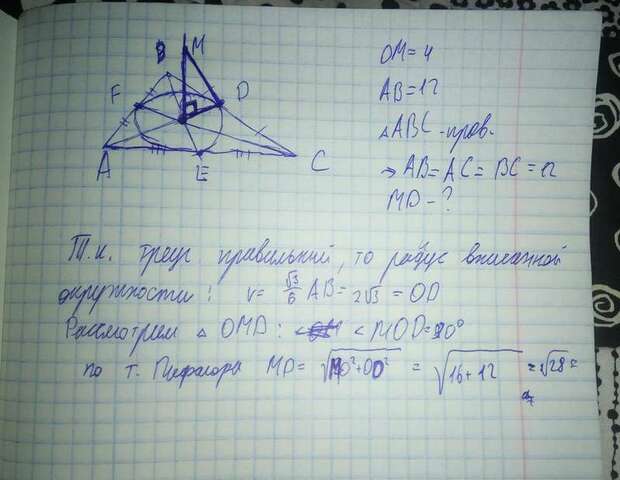 B M
F D
A E C
OM = 4
AB = 12
△ABC - прав.
→ AB = AC = BC = 12
MD - ?
Т.к. треуг. правильний, то радиус вписанной
окружности: r = √3/6 AB = 2√3 = OD
Рассмотрим △ OMD: < MOD = 90°
по т. Пифагора MD = √MO²+OD² = √16+12 = √28 =